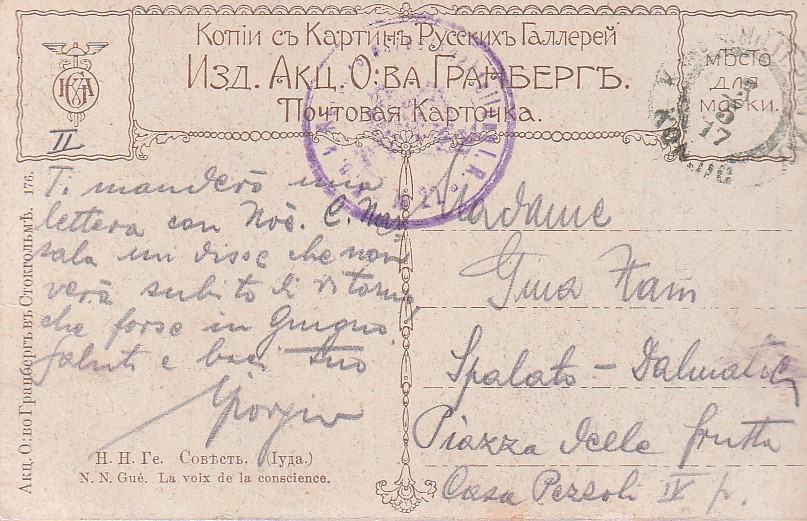 Копіи съ Картинъ Русскихъ Галлерей
Изд. Акц. О:ва Гранбергъ.
Почтовая Карточка.
мѣсто
для
марки.
II
Ti manderò una
lettera con Noè. C. 
sala mi disse che non
verrà subito di ritorno,
che forse in Giugno.
Saluti e baci tuo
Giorgio
Madame
Gina
Spalato – Dalmatia
Piazza delle frutta
Casa Persoli IV p.
Н. Н. Ге. Совѣсть. (Іуда.)
N. N. Gué. La voix de la conscience.
Акц. О:во Гранбергъ въ Стокгольмѣ. 176.
17